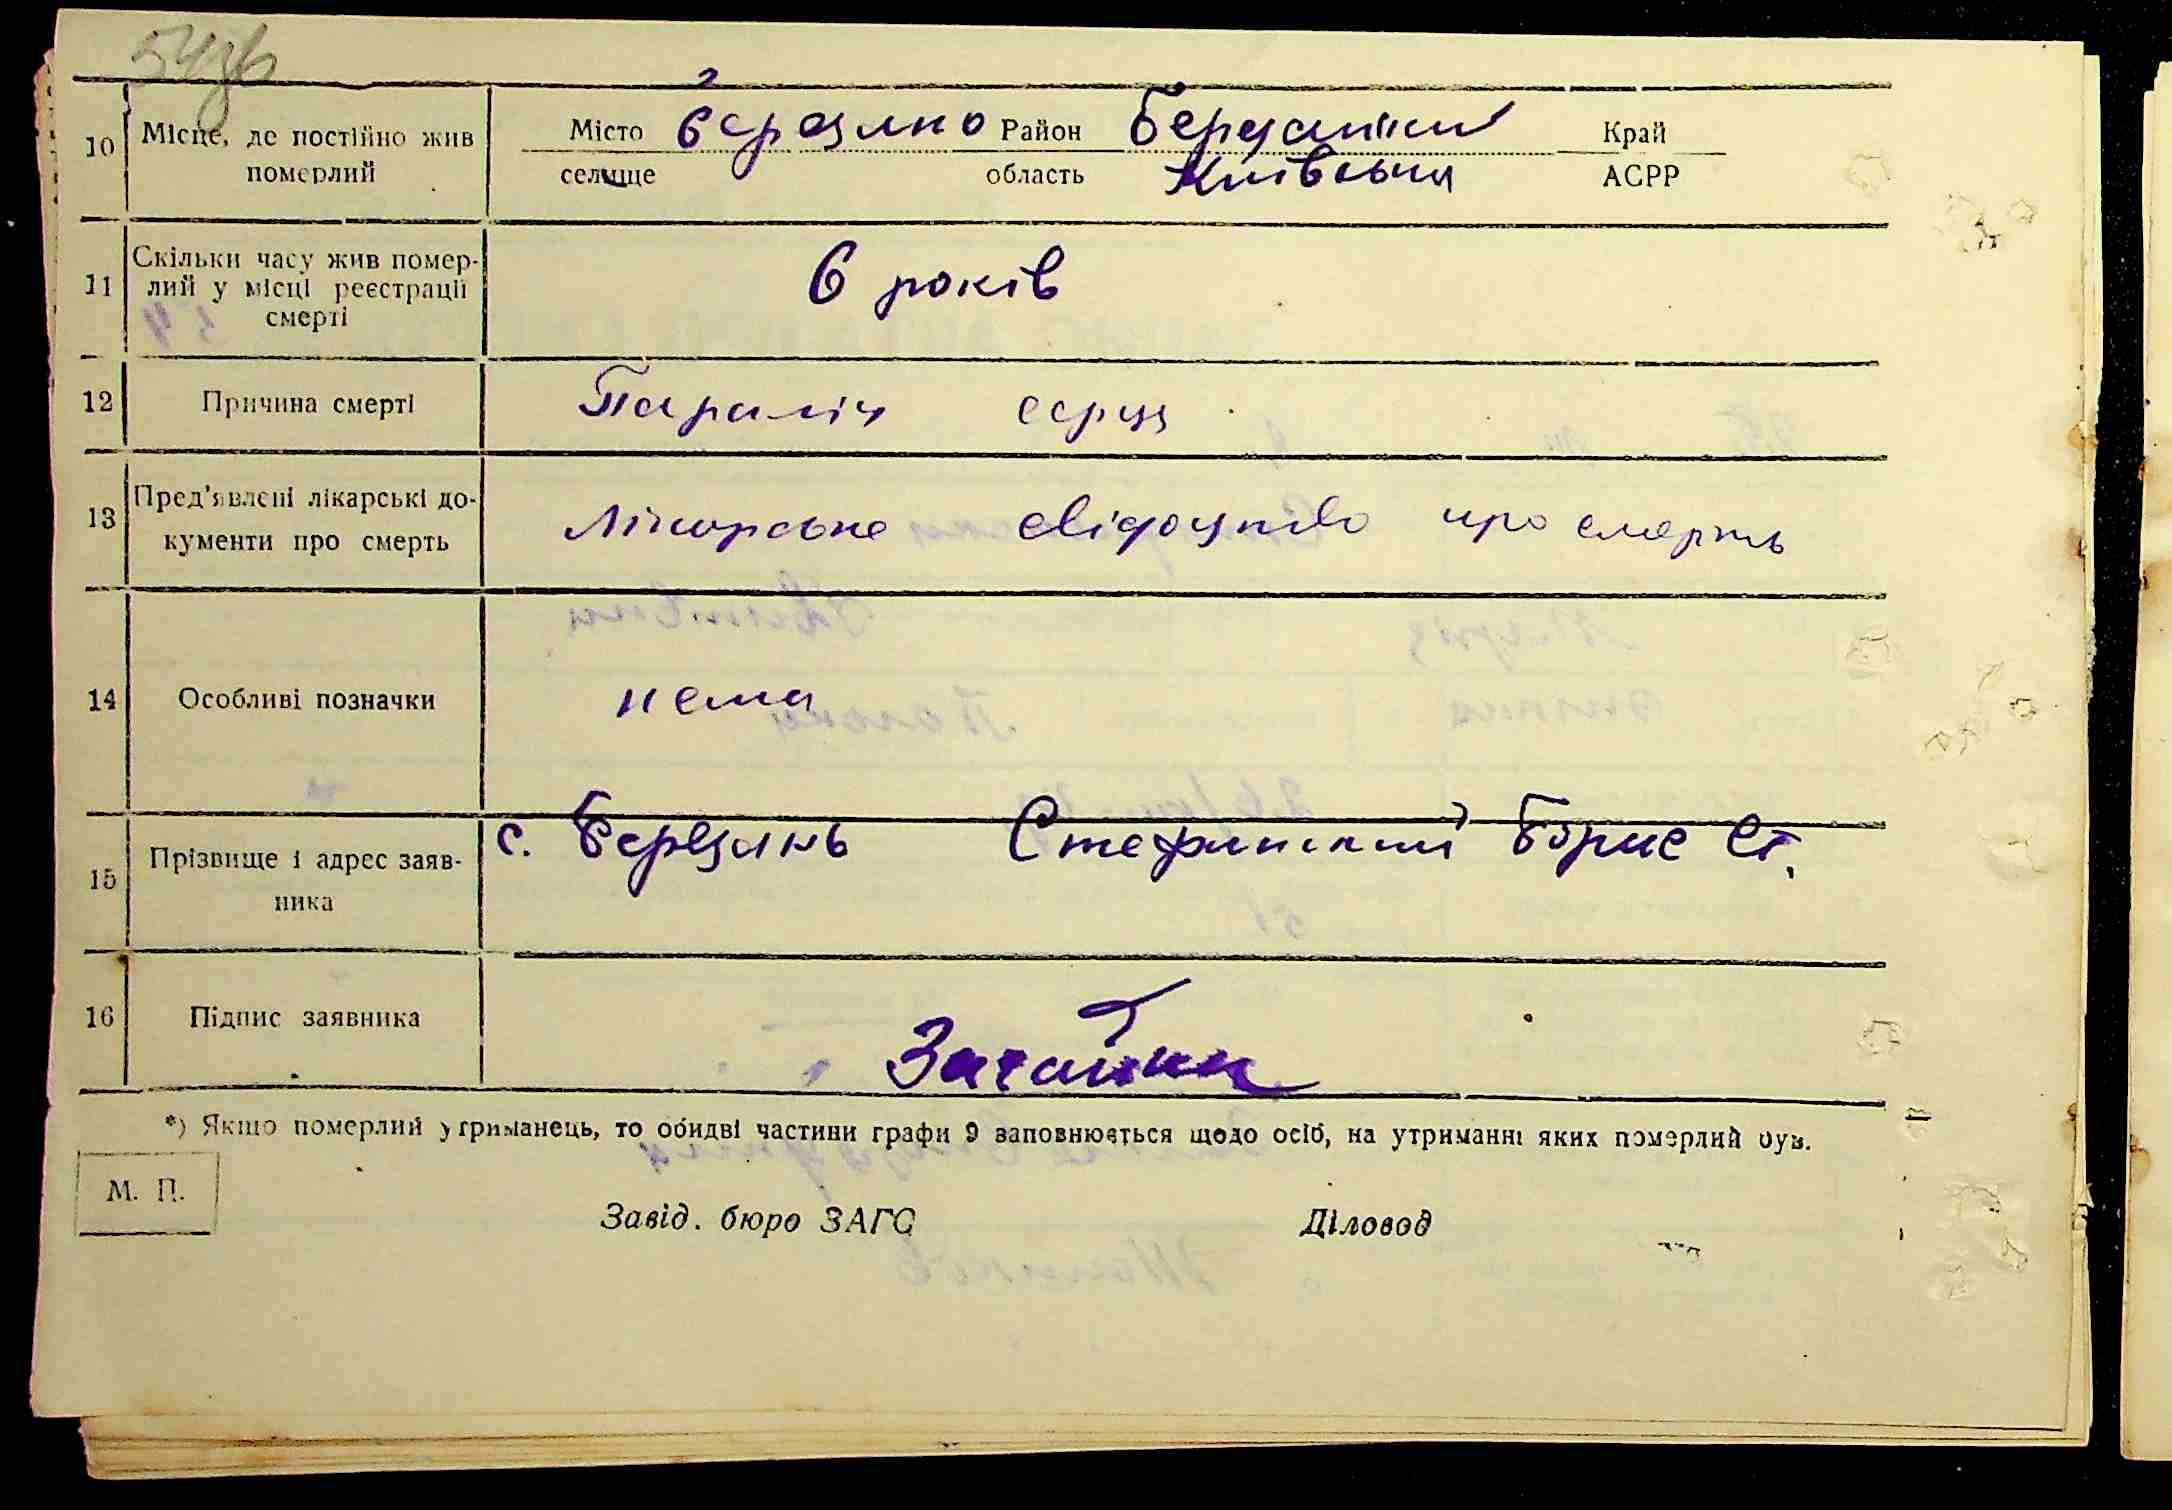 54зв
10 Місце, де постійно жив померлий Місто Березань Район Березанський Край
селище область Київська АСРР
11 Скільки часу жив помер-
лий у місці реєстрації
смерті
6 років
12 Причина смерті Параліч серця
13 Пред'явлені лікарські до-
кументи про смерть
Лікарське свідоцтво про смерть
14 Особливі позначки нема
15 Прізвище і адрес заяв-
ника
с. Березань Стефанський Борис Ст.
16 Підпис заявника
*) Якщо померлий утриманець, то обидві частини графи 9 заповнюється щодо осіб, на утриманні яких померлий був.
М. П.
Завід. бюро ЗАГС Діловод